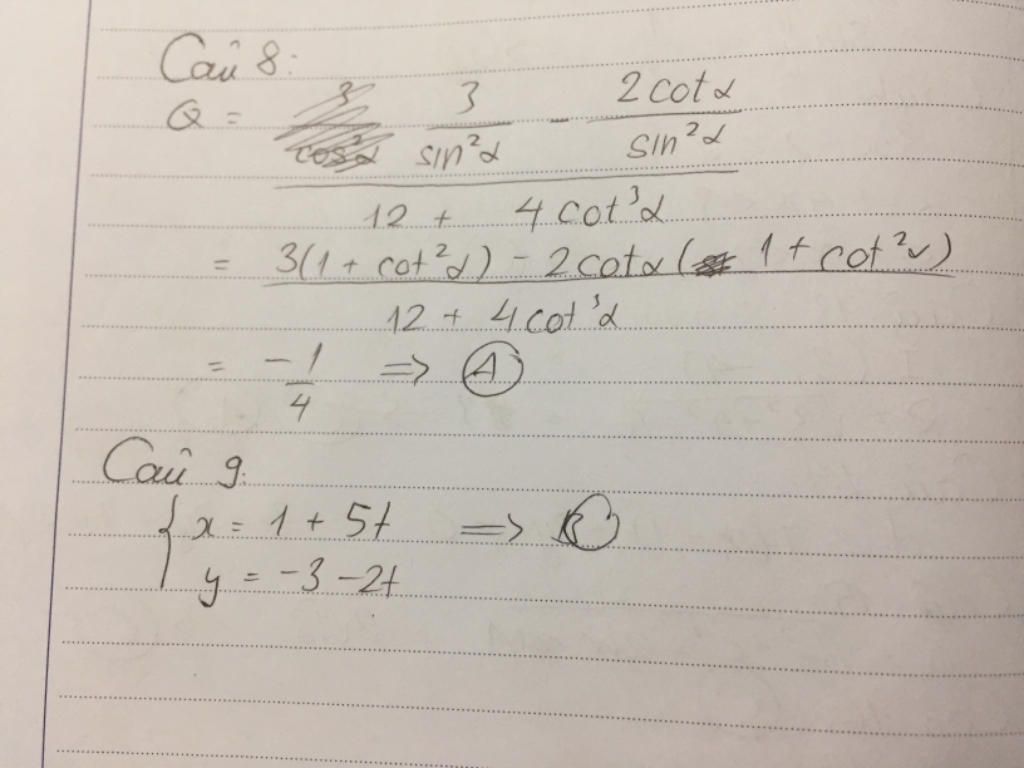 Câu 8:
Q = 3/sin²α - 2cotα/sin²α
12 + 4cot³α
= 3(1 + cot²α) - 2cotα(1 + cot²α)
12 + 4cot³α
= -1/4 => A
Câu 9.
{ x = 1 + 5t => B
y = -3 - 2t